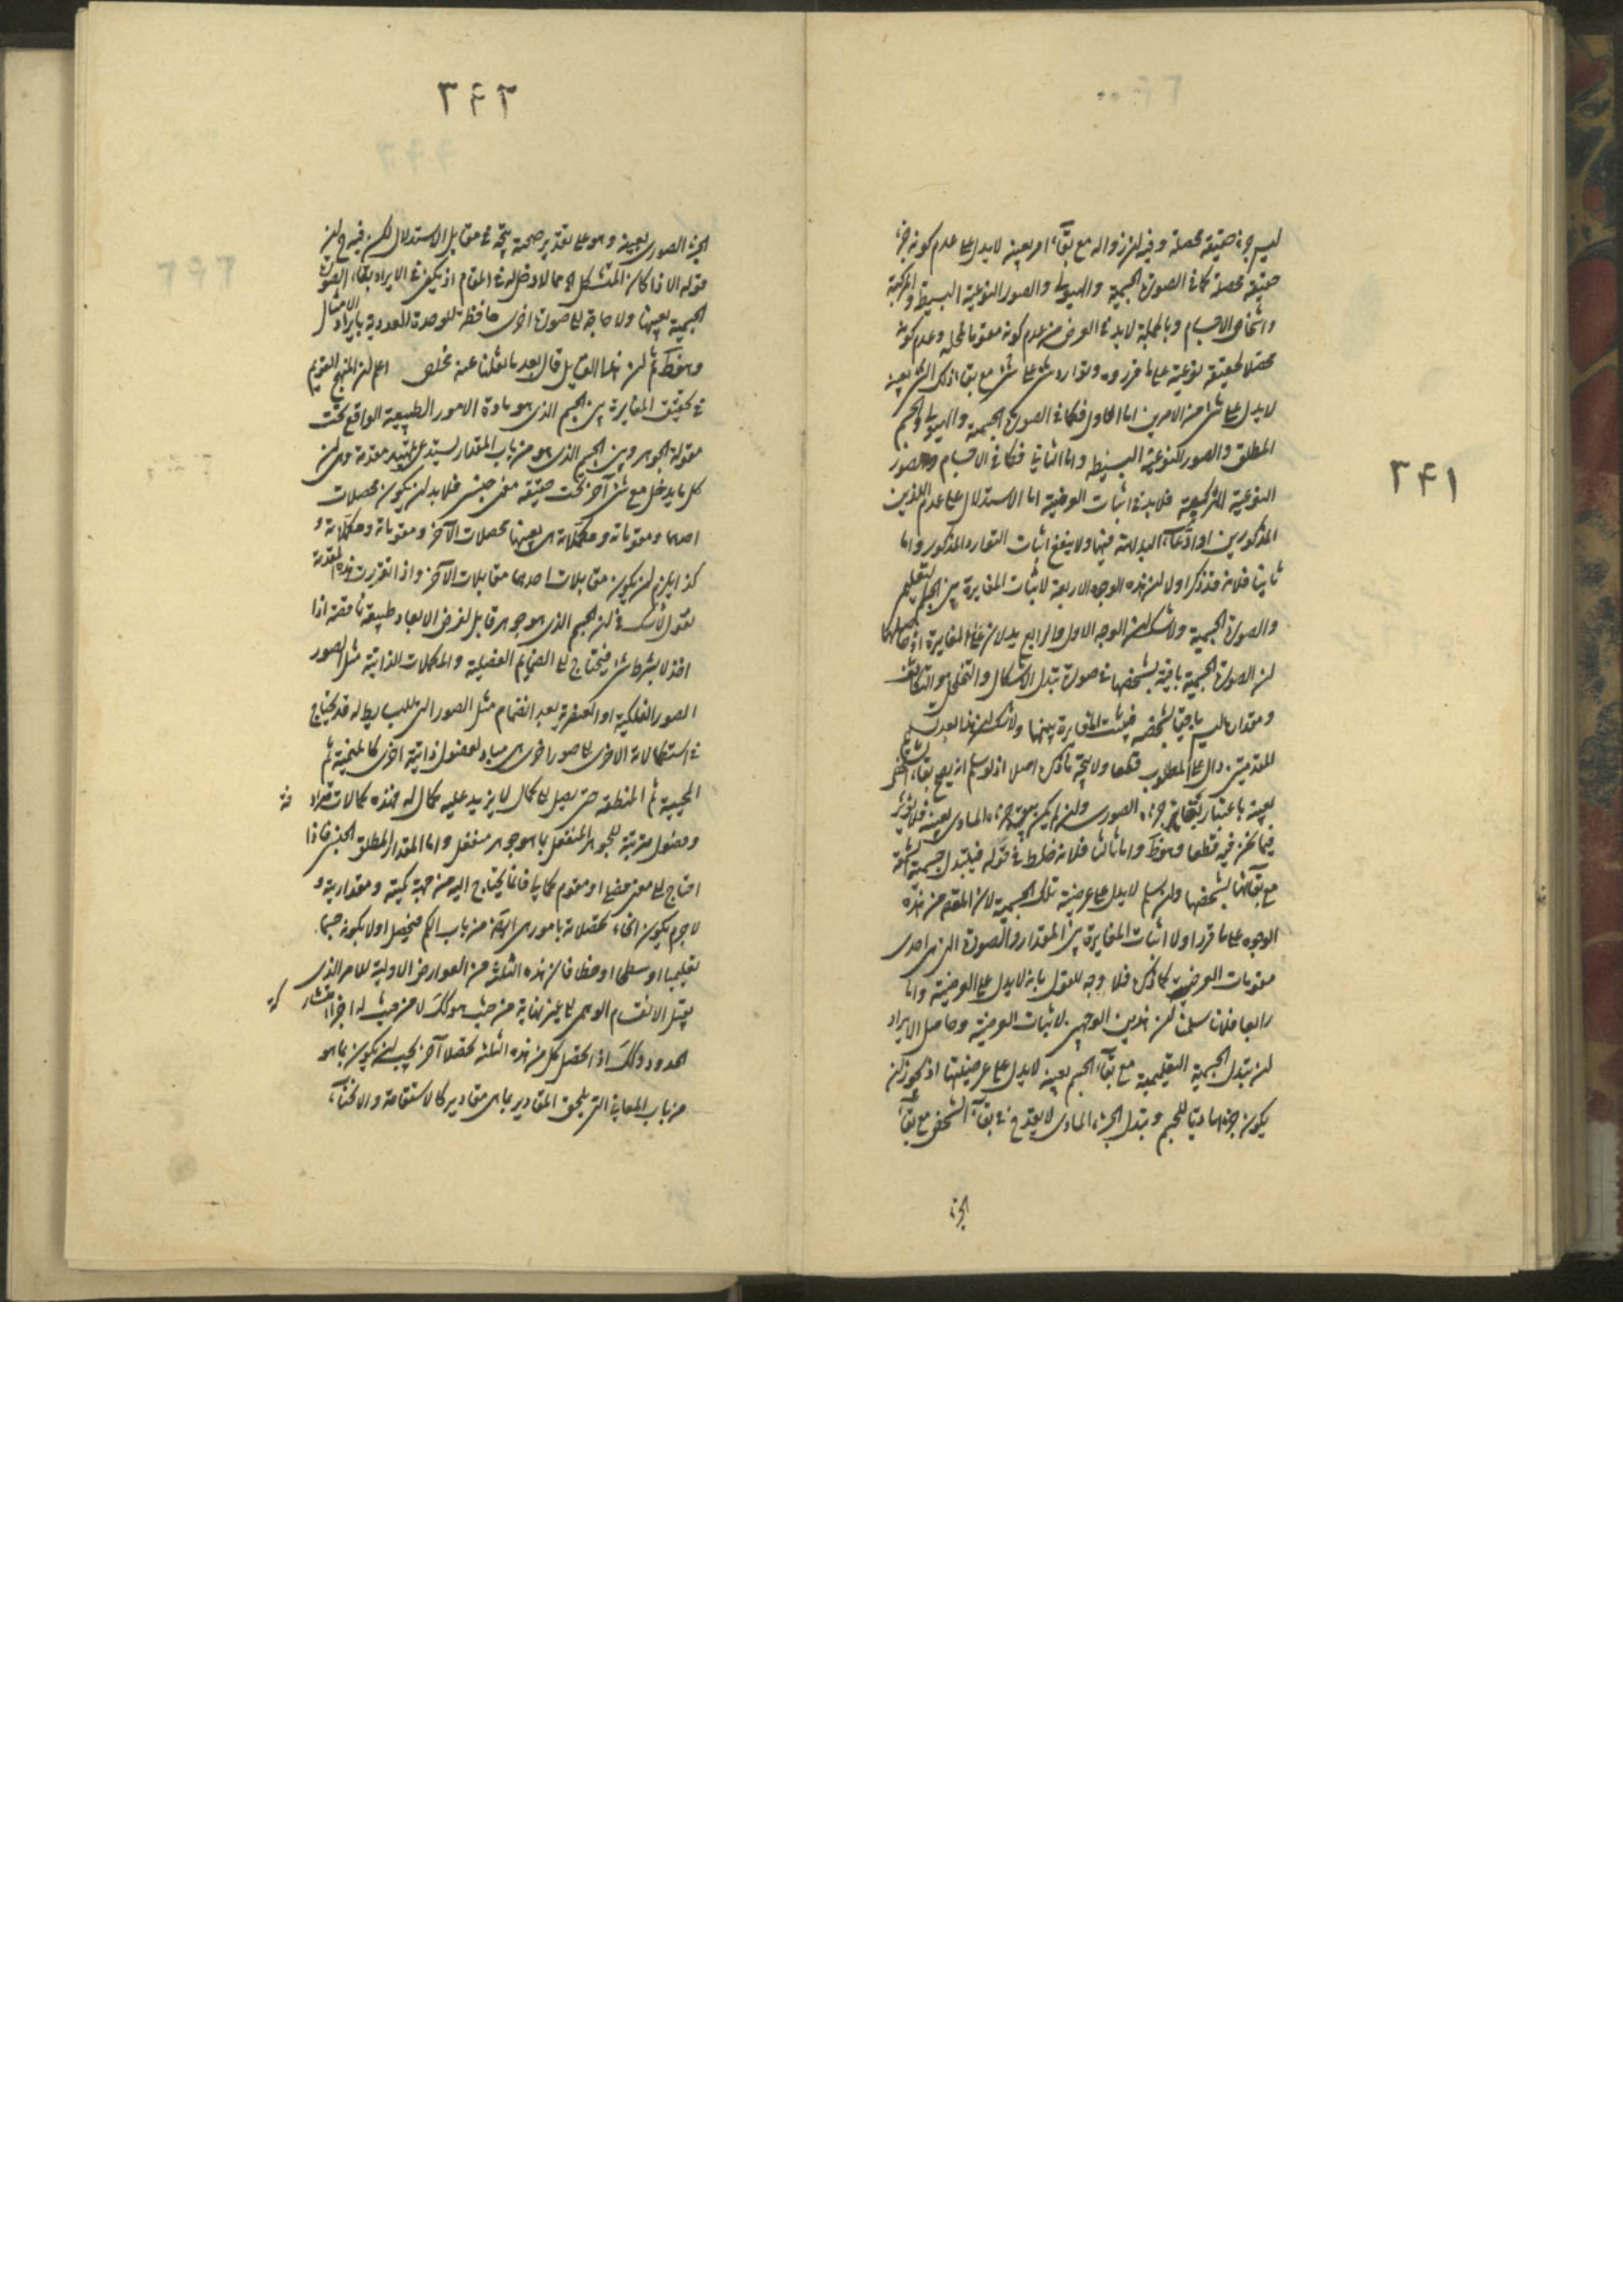 ٢٤١
ليس جزء حقيقة محصلة وفيه ان زواله مع بقاء امر بعينه لا يدل على عدم كونه جزء
حقيقة محصلة كما في الصورة الجسمية والهيولى والصور النوعية البسيطة والمركبة
واشخاص الاجسام وبالجملة لا بد في العرض من عدم كونه مقوما لمحله وعدم كونه
محصلا لحقيقة نوعية على ما قرروه وتوارد شئ على شئ مع بقاء ذلك الشئ بعينه
لا يدل على شئ من الامرين اما الاول فكما في الصورة الجسمية والهيولى والجسم
المطلق والصور النوعية البسيطة واما الثاني فكما في الاجسام والصور
النوعية التركيبية فلا بد في اثبات العرضية اما الاستدلال على عدم اللذين
المذكورين او ادعاء البداهة فيها ولا ينفع اثبات التوارد المذكور واما
ثانيا فلانه قد ذكر اولا ان هذه الوجوه الاربعة لاثبات المغايرة بين الجسم التعليمي
والصورة الجسمية ولا شك ان الوجه الاول والرابع يدلان على المغايرة اذ حاصلهما
ان الصورة الجسمية باقية بشخصها في صورة تبدل الاشكال والتخلخل والتكاثف
ومقدارها ليس باقيا بشخصه فيثبت المغايرة بينهما ولا شك ان هذا بعد تسليم
المقدمتين دال على المطلوب قطعا ولا يتجه ما ذكره اصلا اذ لو سلم انه يصح بقاء الشخص
بعينه باعتبار بقاء جزء الصوري وان لم يكن يبقى جزء المادي بعينه فلا يؤثر
فيما نحن فيه قطعا وهو ظ واما ثالثا فلانه خلط في قوله فيتبدل جسمية الشمعة
مع بقائها بشخصها وان سلم لا يدل على عرضية تلك الجسمية لان المقصود من هذه
الوجوه على ما قرر اولا اثبات المغايرة بين المقدار والصورة التي هي احدى
مقدمات العرضية كما ذكره فلا وجه للقول بانه لا يدل على العرضية واما
رابعا فلانا سلمنا ان هذين الوجهين لاثبات العرضية وحاصل الايراد
ان تبدل الجسمية التعليمية مع بقاء الجسم بعينه لا يدل على عرضيتها اذ يجوز ان
يكون جزءا ماديا للجسم وتبدل الجزء المادي لا يقدح في بقاء الشخص مع بقاء
الجزء
٢٤٢
الجزء الصوري بعينه وهو على تقدير صحته يتجه في مقابل الاستدلال لكن فيه ح ان
قوله الا اذا كان المتشكل الخ مما لا دخل له في المقام اذ يكفي في الايراد بقاء الصورة
الجسمية بعينها ولا حاجة الى صورة اخرى حافظة للوحدة العددية بايراد الامثال
وهو ظ ثم ان هذا القائل قال بعد ما نقلنا عنه مخلص اعلم ان المنهج القويم
في تحقيق المغايرة بين الجسم الذي هو مادة الامور الطبيعية الواقع تحت
مقولة الجوهر وبين الجسم الذي هو من باب المقدار يستدعي تمهيد مقدمة وهي ان
كل ما يدخل مع شئ آخر تحت حقيقة معنى جنسي فلا بد ان يكون محصلات
احدهما ومقوماته ومكملاته هي بعينها محصلات الآخر ومقوماته ومكملاته و
كذا يلزم ان يكون مقابلات احدهما مقابلات الآخر واذا تقررت هذه المقدمة
نقول لا شك في ان الجسم الذي هو جوهر قابل لفرض الابعاد طبيعة ناقصة اذا
اخذ لا بشرط شئ فيحتاج الى الضمائم الفصلية والمكملات الذاتية مثل الصور
الصور الفلكية او العنصرية بعد انضمام مثل الصور التي للبسايط له قد يحتاج
في استكمالاته الاخرى الى صور اخرى هي مباد لفصول ذاتية اخرى كالمنمية ثم
الحسية ثم المنطقية حتى يصل الى كمال لا يزيد عليه كمال له فهذه كمالات مترادفة
وفصول مترتبة للجوهر المنفعل بما هو جوهر منفعل واما المقدار المطلق الجنسي فاذا
احتاج الى معنى فصلي او مقوم كمالي فانما يحتاج اليه من جهة كميته ومقداريته و
لا جرم يكون انحاء تحصلاته بامور هي ايضا من باب الكم فيتحصل اولا بكونه جسما
تعليميا او سطحا او خطا فان هذه الثلاثة من العوارض الاولية للامر الذي
يقبل الانقسام الوهمي الى غير نهاية من حيث هو كذلك لا من حيث له اجزاء متشاركة
الحدود وكذلك اذا تحصل كل من هذه الثلاثة تحصلا آخر يجب ان يكون بما هو
من باب المعاني التي تلحق المقادير بما هي مقادير كالاستقامة والانحناء